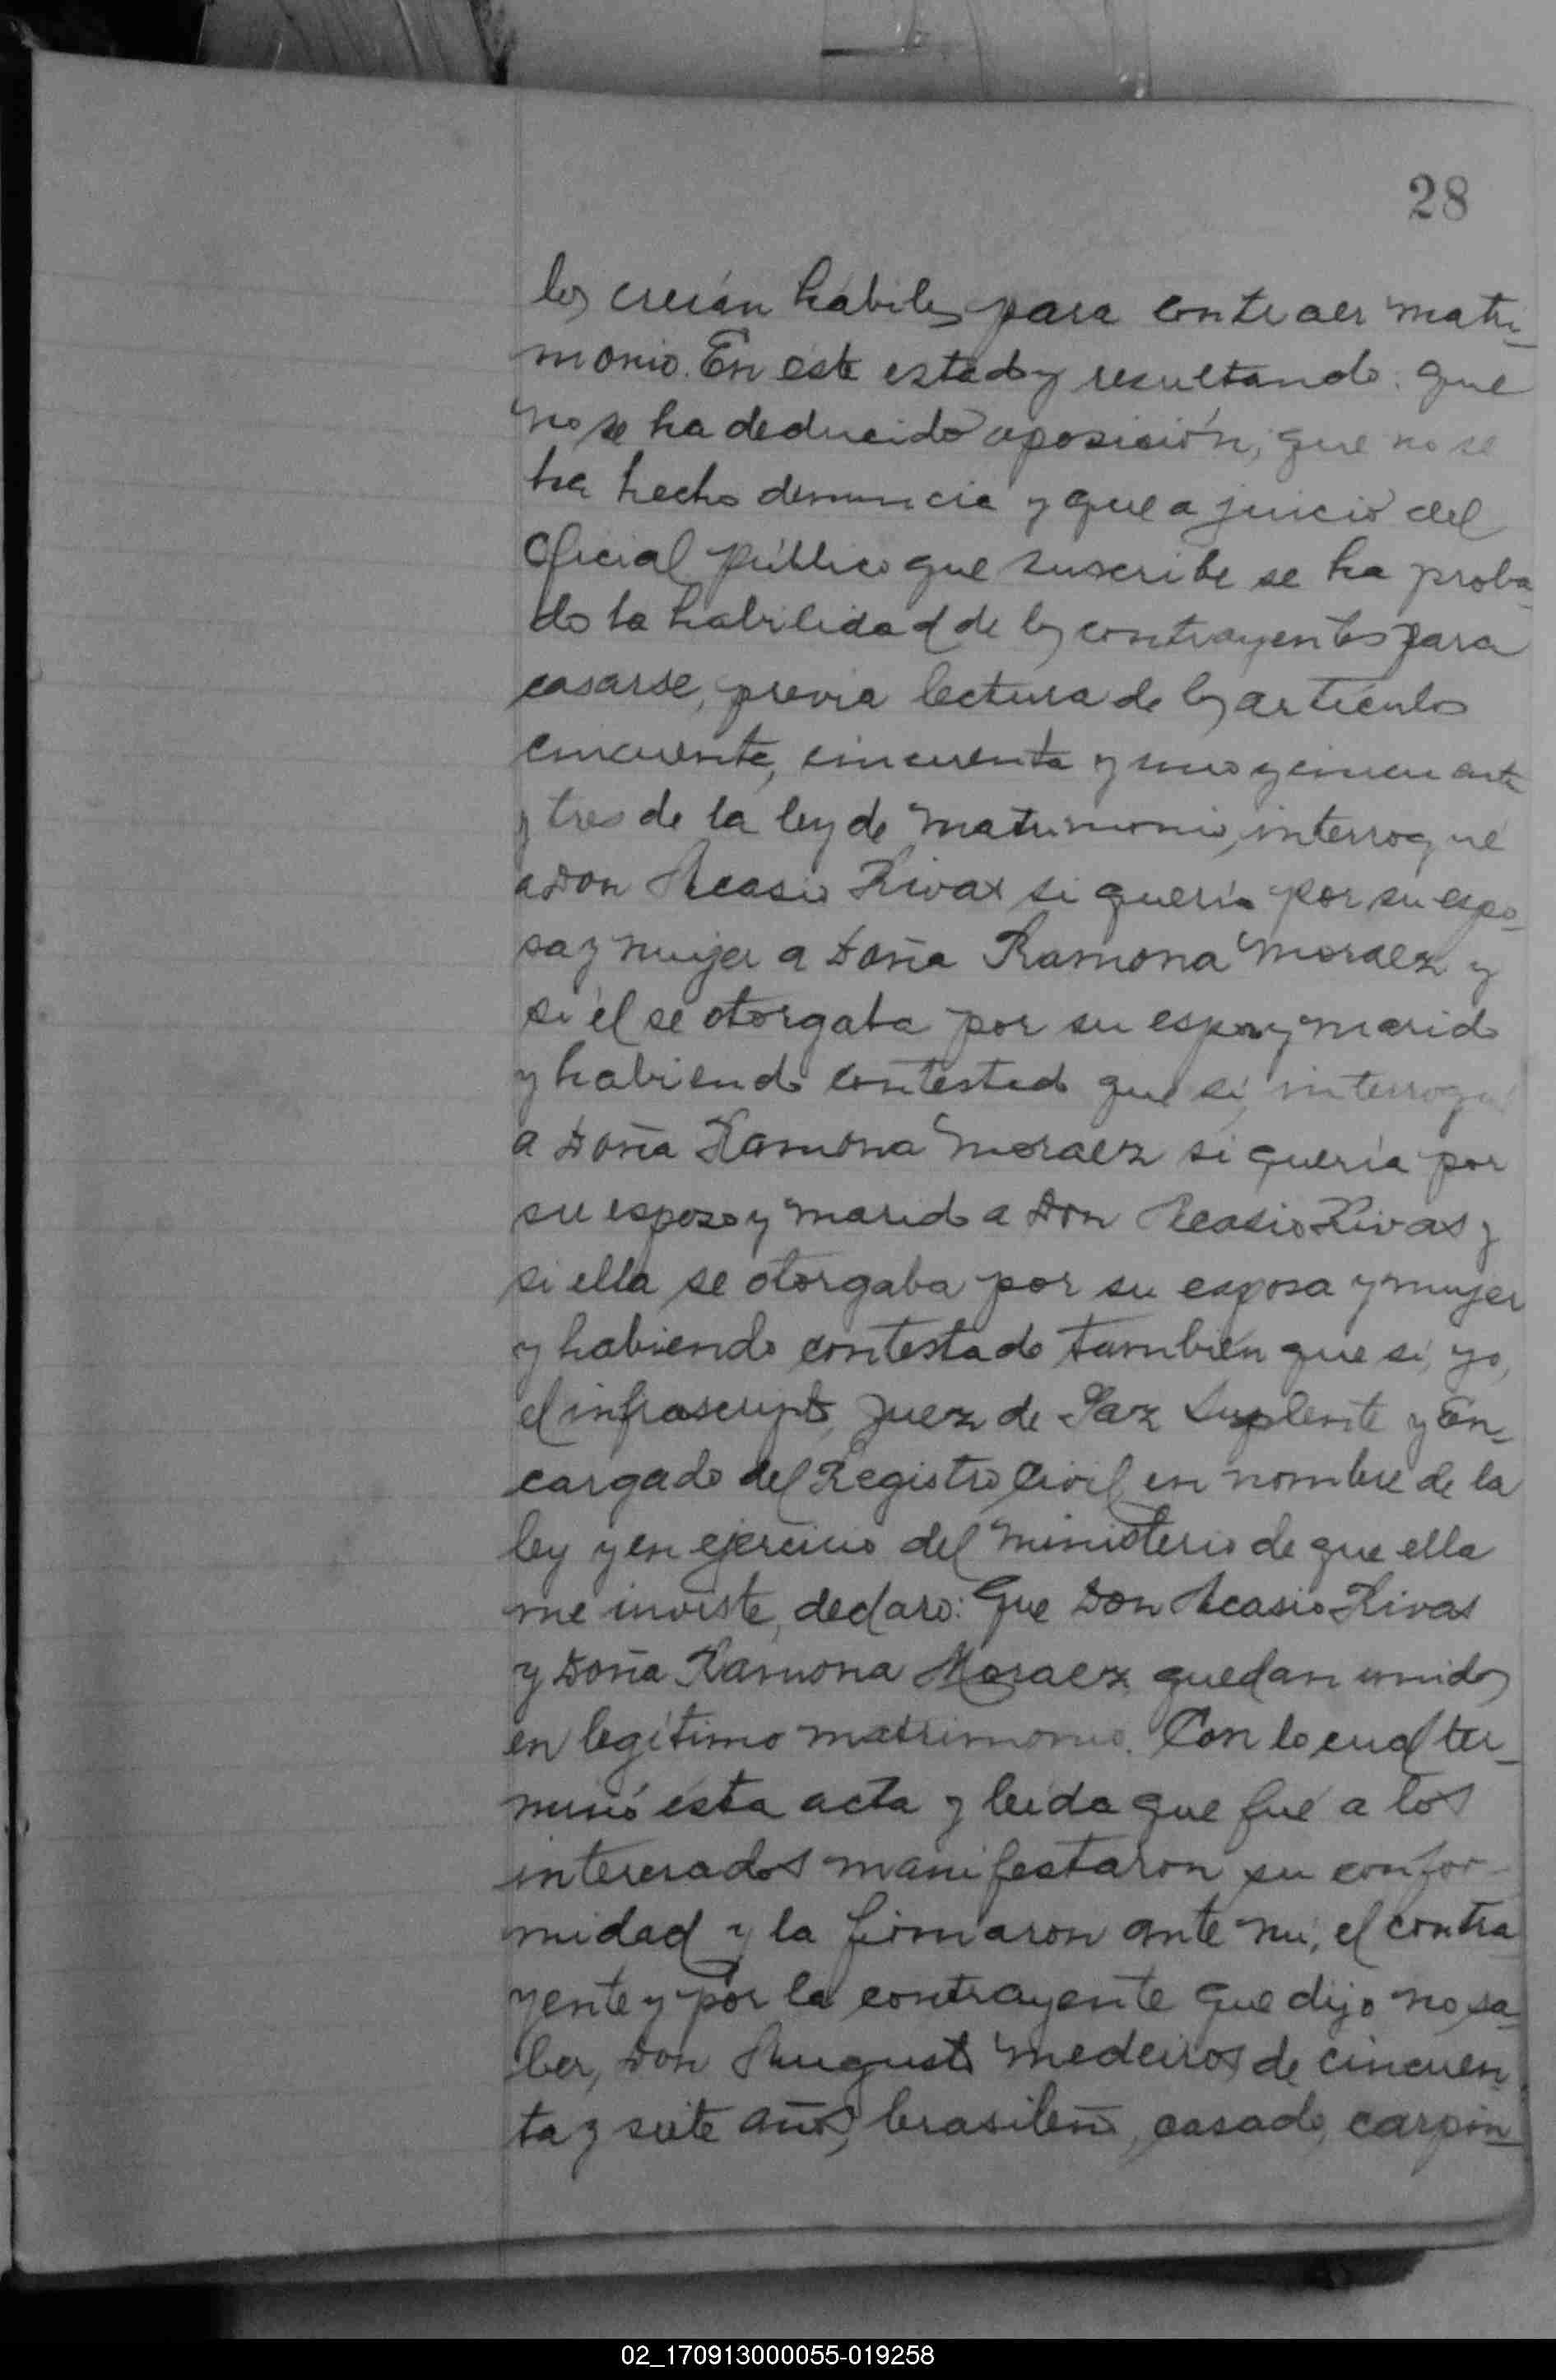 28
los creían hábiles para contraer matri-
monio. En este estado y resultando: que
no se ha deducido oposición, que no se
ha hecho denuncia y que a juicio del
Oficial Público que suscribe se ha proba-
do la habilidad de los contrayentes para
casarse, previa lectura de los artículos
cincuenta, cincuenta y uno y cincuenta
y tres de la ley de Matrimonio, interrogué
a Don Acasio Rivas si quería por su espo-
sa y mujer a Doña Ramona Moraez y
si él se otorgaba por su esposo y marido
y habiendo contestado que sí, interrogué
a Doña Ramona Moraez si quería por
su esposo y marido a Don Acasio Rivas y
si ella se otorgaba por su esposa y mujer
y habiendo contestado también que sí, yo,
el infrascripto, Juez de Paz Suplente y En-
cargado del Registro Civil en nombre de la
ley y en ejercicio del Ministerio de que ella
me inviste, declaro: Que Don Acasio Rivas
y Doña Ramona Moraez quedan unidos
en legítimo matrimonio. Con lo cual ter-
minó esta acta y leída que fué a los
interesados manifestaron su confor-
midad y la firmaron ante mí, el contra
yente y por la contrayente que dijo no sa-
ber, Don Augusto Medeiros de cincuen-
ta y siete años, brasileño, casado, carpin-
02_170913000055-019258